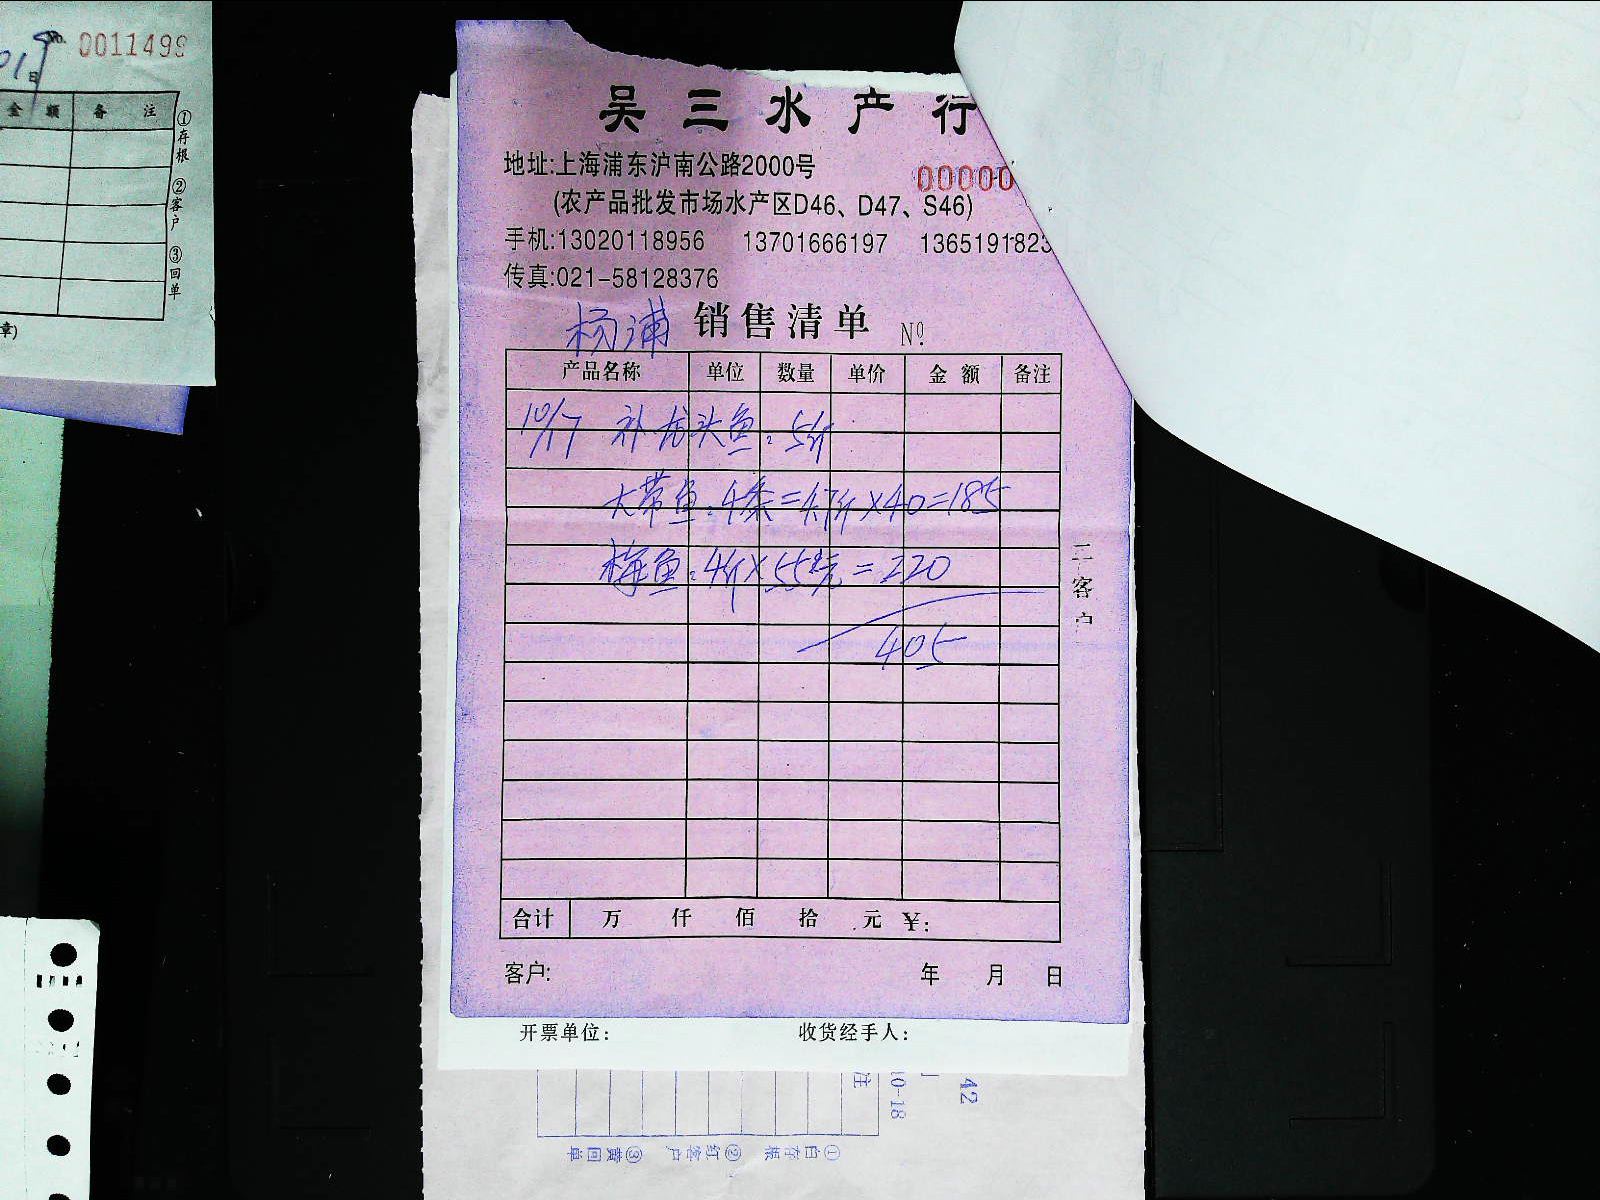 No. 0011499
日
金 额 备 注
①存根 ②客户 ③回单
章)
吴三水产行
地址:上海浦东沪南公路2000号
00000
(农产品批发市场水产区D46、D47、S46)
手机:13020118956 13701666197 1365191823
传真:021-58128376
杨浦 销售清单 №
产品名称 单位 数量 单价 金额 备注
10/17 补龙头鱼:5斤
大带鱼:4条=4.7斤×40=185
梅鱼:4斤×55元=220
405
二客户
合计 万 仟 佰 拾 元 ¥:
客户: 年 月 日
开票单位: 收货经手人:
注
10-18
42
①白存根 ②红客户 ③黄回单